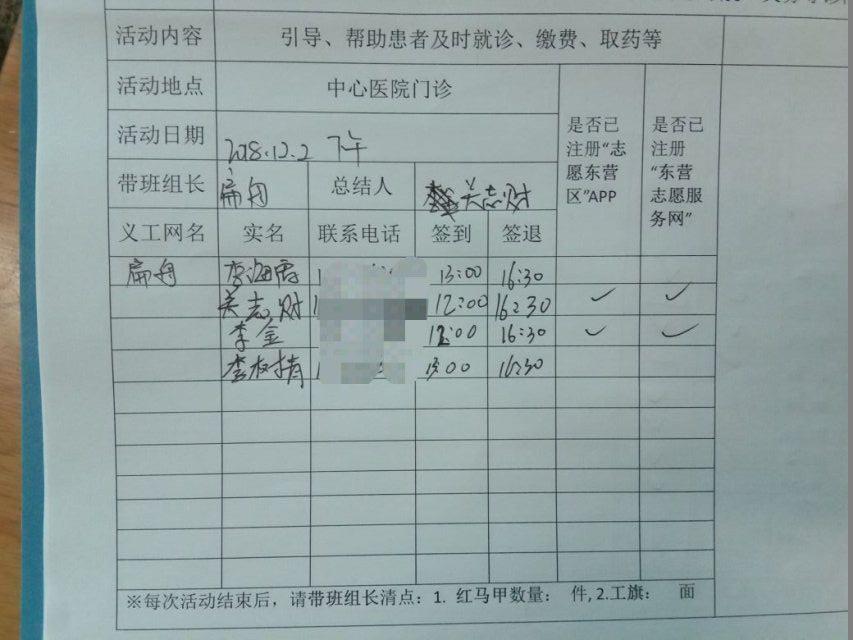 活动内容 引导、帮助患者及时就诊、缴费、取药等
活动地点 中心医院门诊
是否已注册“志愿东营区”APP
是否已注册“东营志愿服务网”
活动日期 2018.12.2 下午
带班组长 扁舟 总结人 关志财
义工网名 实名 联系电话 签到 签退
扁舟 李海霞 13:00 16:30
关志财 12:00 16:30 ✓ ✓
李金 12:00 16:30 ✓ ✓
李 13:00 16:30
※每次活动结束后，请带班组长清点：1. 红马甲数量： 件, 2.工旗： 面